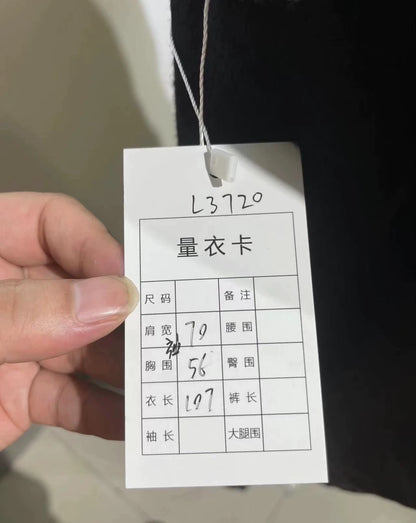 L3720
量衣卡
尺码 备注
肩宽 70 腰围
胸围 56 臀围
衣长 107 裤长
袖长 大腿围